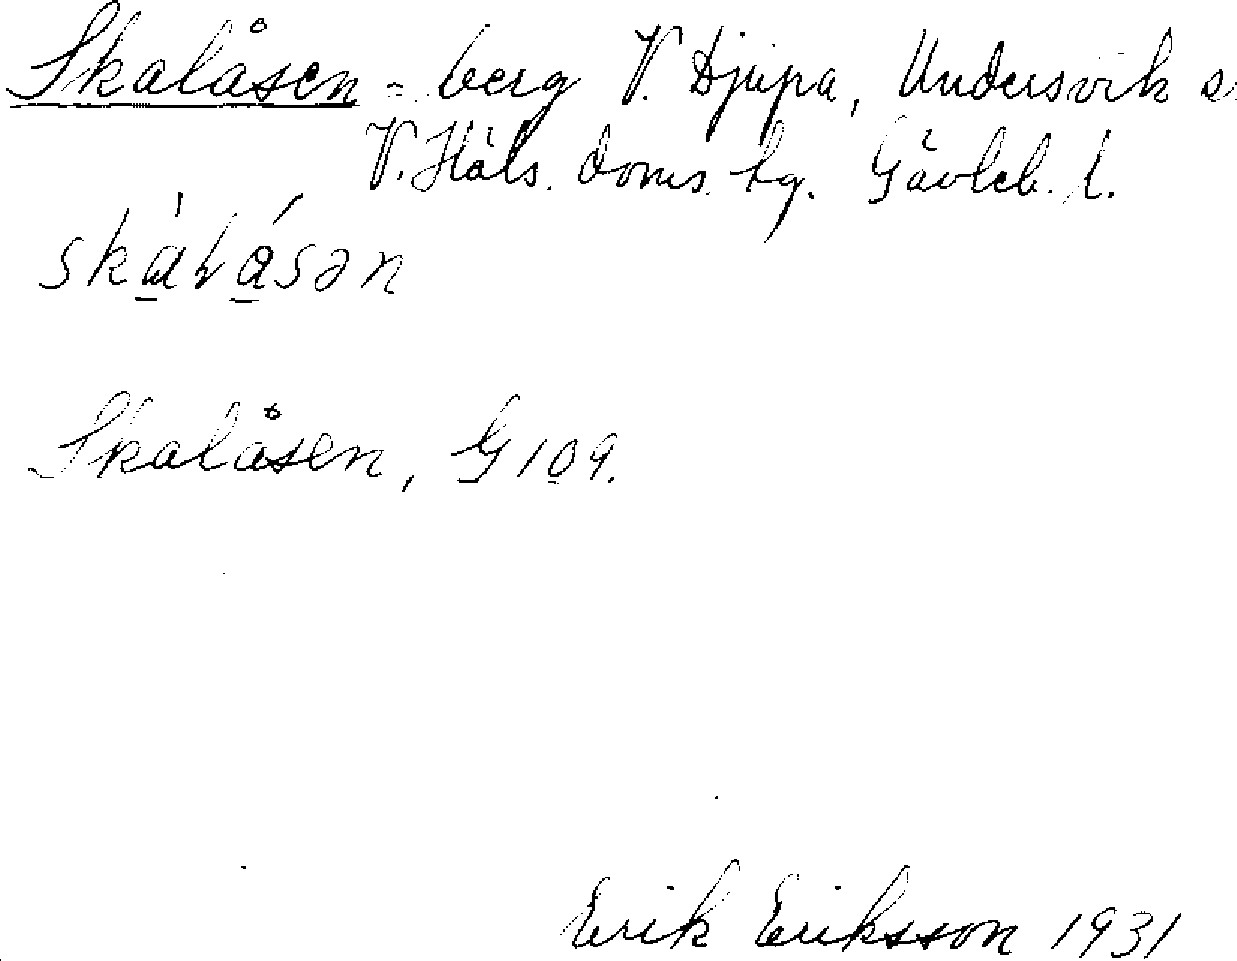 Skalåsen = berg V. Djupa, Undersvik s.
V. Häls. doms. hg. Gävleb. l.
skàlásən
Skalåsen, G 109.
Erik Eriksson 1931